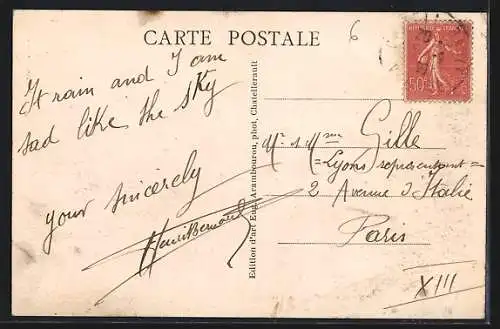 CARTE POSTALE
6
REPUBLIQUE FRANÇAISE
50c
It rain and I am
sad like the sky
your sincerely
Henri Bernard
Edition d'art Eug. Arambourou, phot. Chatellerault
Mr & Mme Gille
(=Lyons) représentant=
2 Avenue d'Italie
Paris
XIII